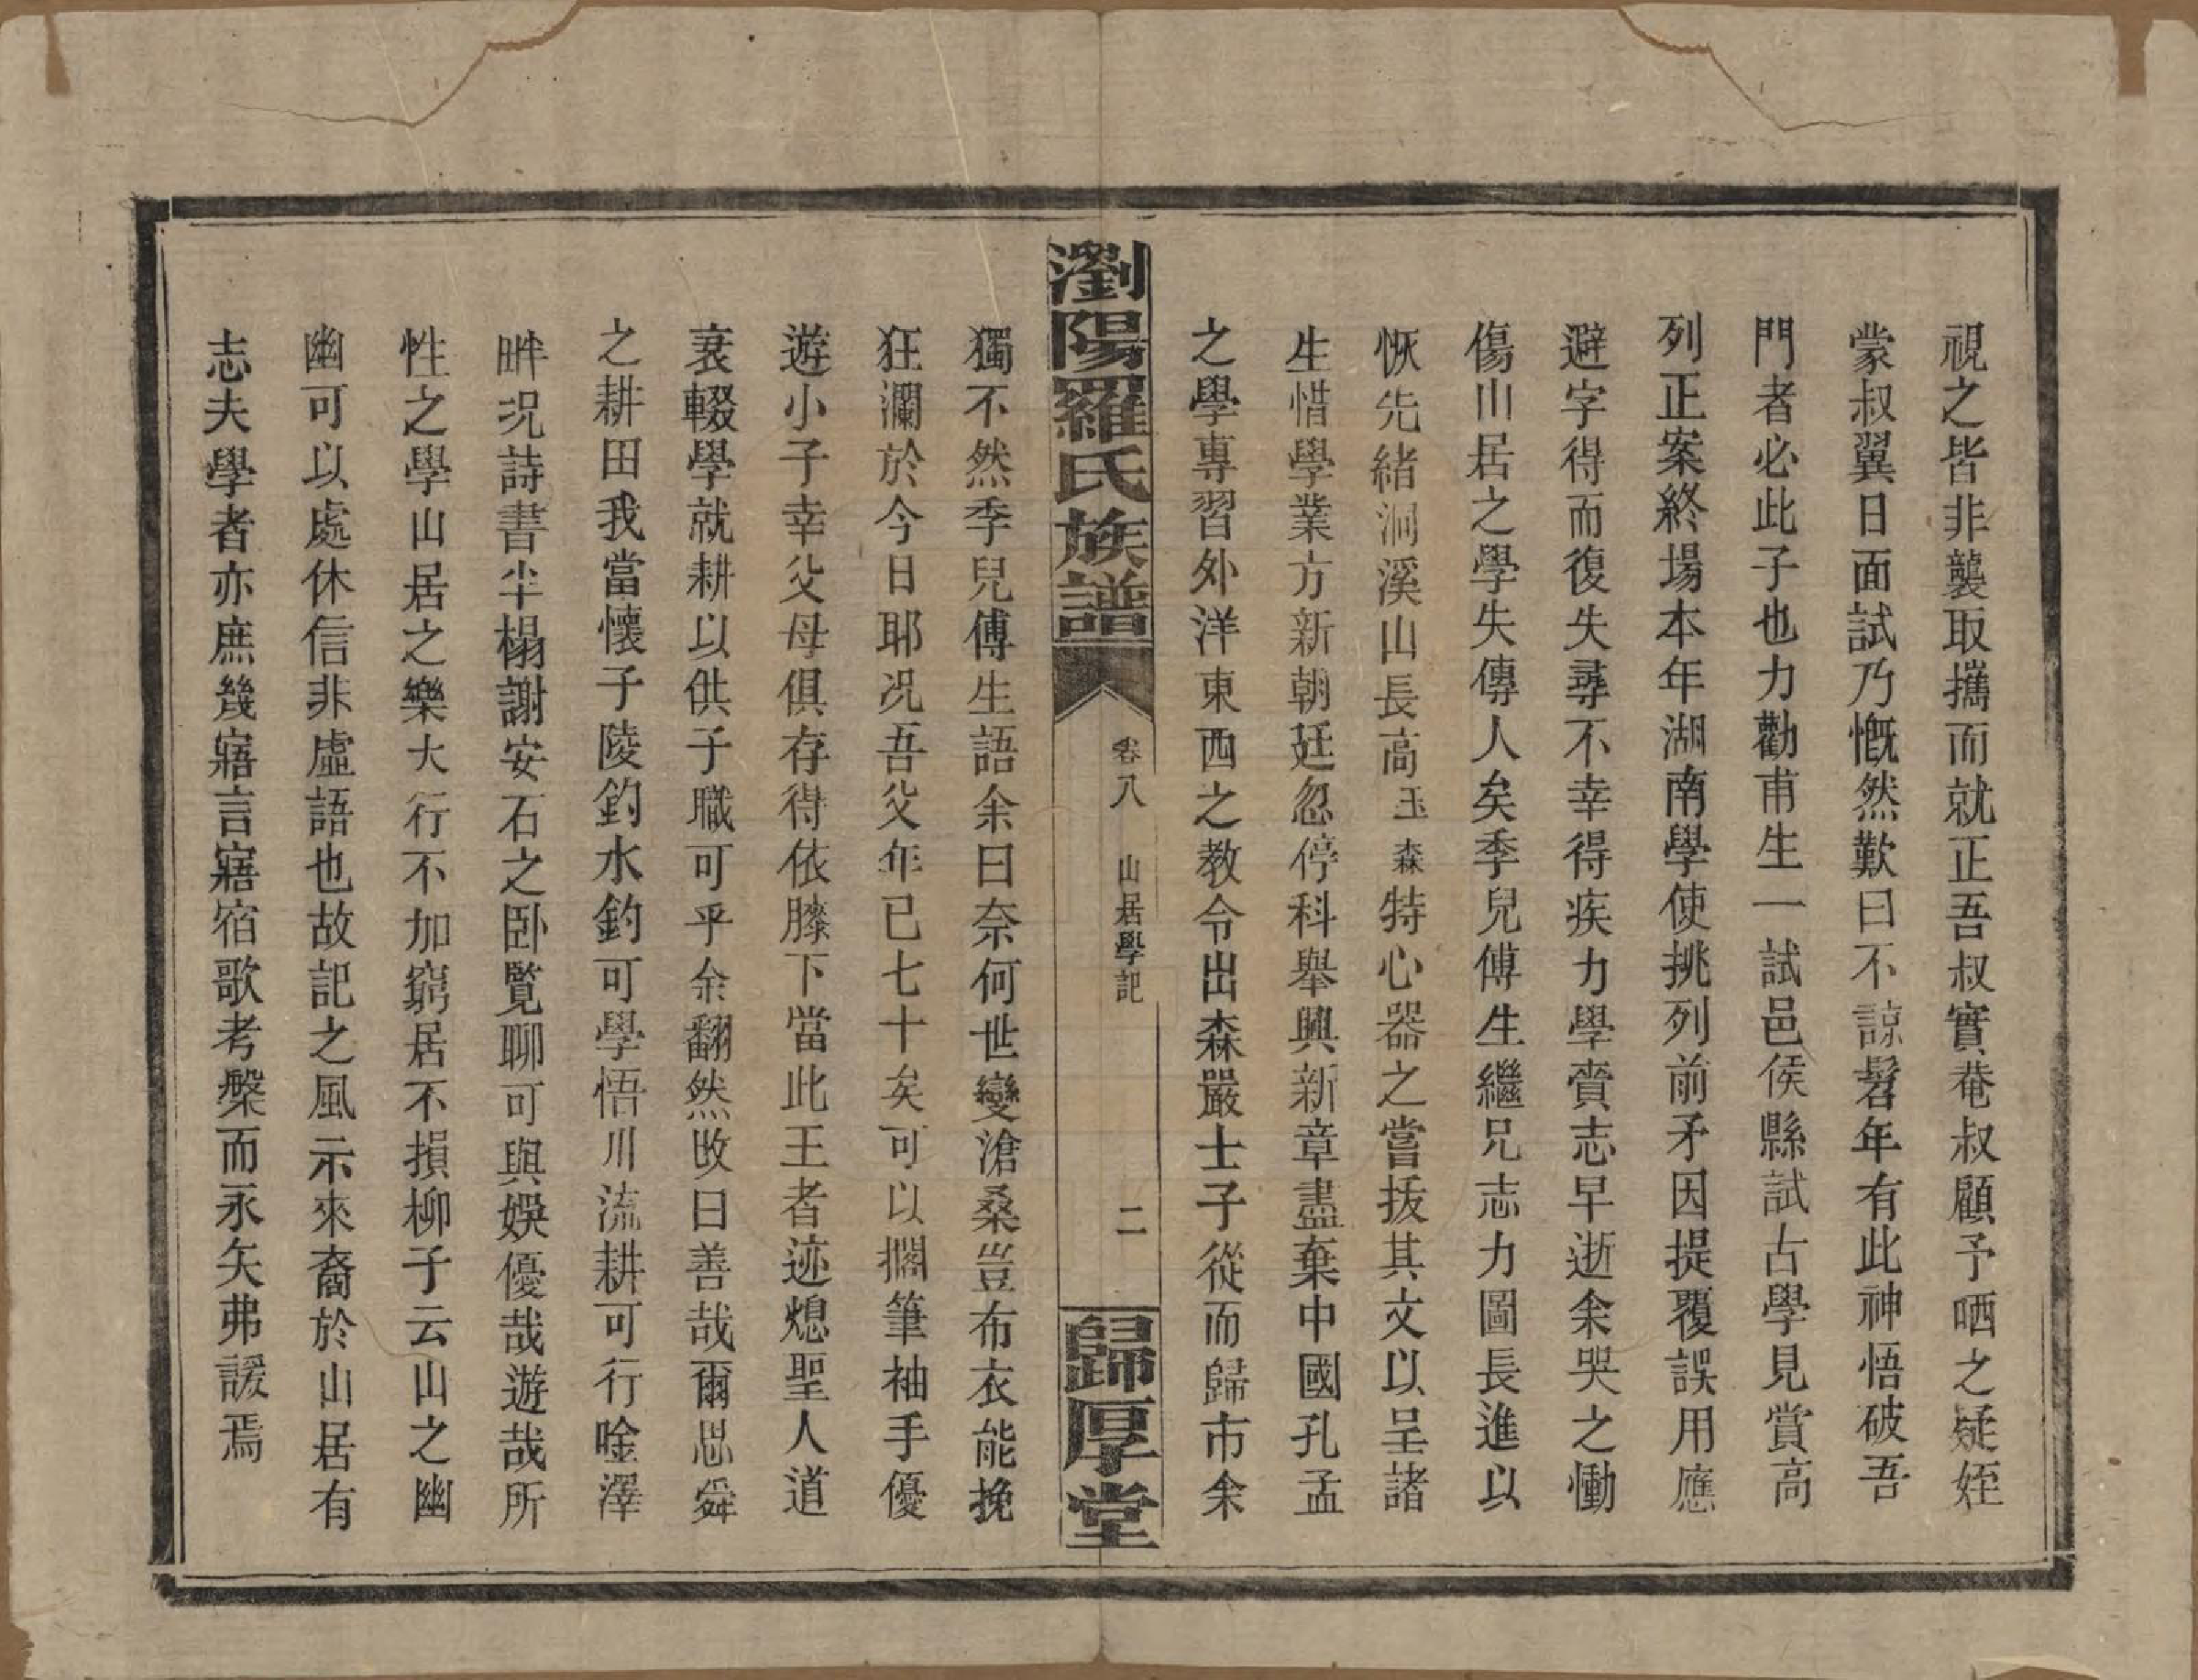 視之皆非襲取攜而就正吾叔實菴叔顧予哂之疑姪
蒙叔翼日面試乃慨然歎曰不諒髫年有此神悟破吾
門者必此子也力勸甫生一試邑侯縣試古學見賞高
列正案終場本年湖南學使挑列前矛因提覆誤用應
避字得而復失尋不幸得疾力學賫志早逝余哭之慟
傷山居之學失傳人矣季兒傅生繼兄志力圖長進以
恢先緒洞溪山長高玉森特心器之嘗拔其文以呈諸
生惜學業方新朝廷忽停科舉興新章盡棄中國孔孟
之學專習外洋東西之教令出森嚴士子從而歸市余
瀏陽羅氏族譜
卷八 山居學記
二
歸厚堂
獨不然季兒傅生語余曰奈何世變滄桑豈布衣能挽
狂瀾於今日耶况吾父年已七十矣可以擱筆袖手優
遊小子幸父母俱存得依膝下當此王者迹熄聖人道
衰輟學就耕以供子職可乎余翻然改曰善哉爾思舜
之耕田我當懷子陵釣水釣可學悟川流耕可行唫澤
畔况詩書半榻謝安石之卧覽聊可與娛優哉遊哉所
性之學山居之樂大行不加窮居不損柳子云山之幽
幽可以處休信非虛語也故記之風示來裔於山居有
志夫學者亦庶幾寤言寤宿歌考槃而永矢弗諼焉